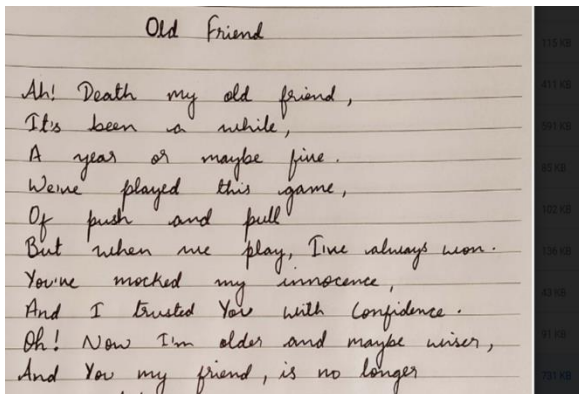 Old Friend
Ah! Death my old friend,
It's been a while,
A year or maybe five.
We've played this game,
Of push and pull
But when we play, I've always won.
You've mocked my innocence,
And I trusted You with Confidence.
Oh! Now I'm older and maybe wiser,
And You my friend, is no longer
115 KB
411 KB
591 KB
65 KB
102 KB
136 KB
43 KB
91 KB
731 KB